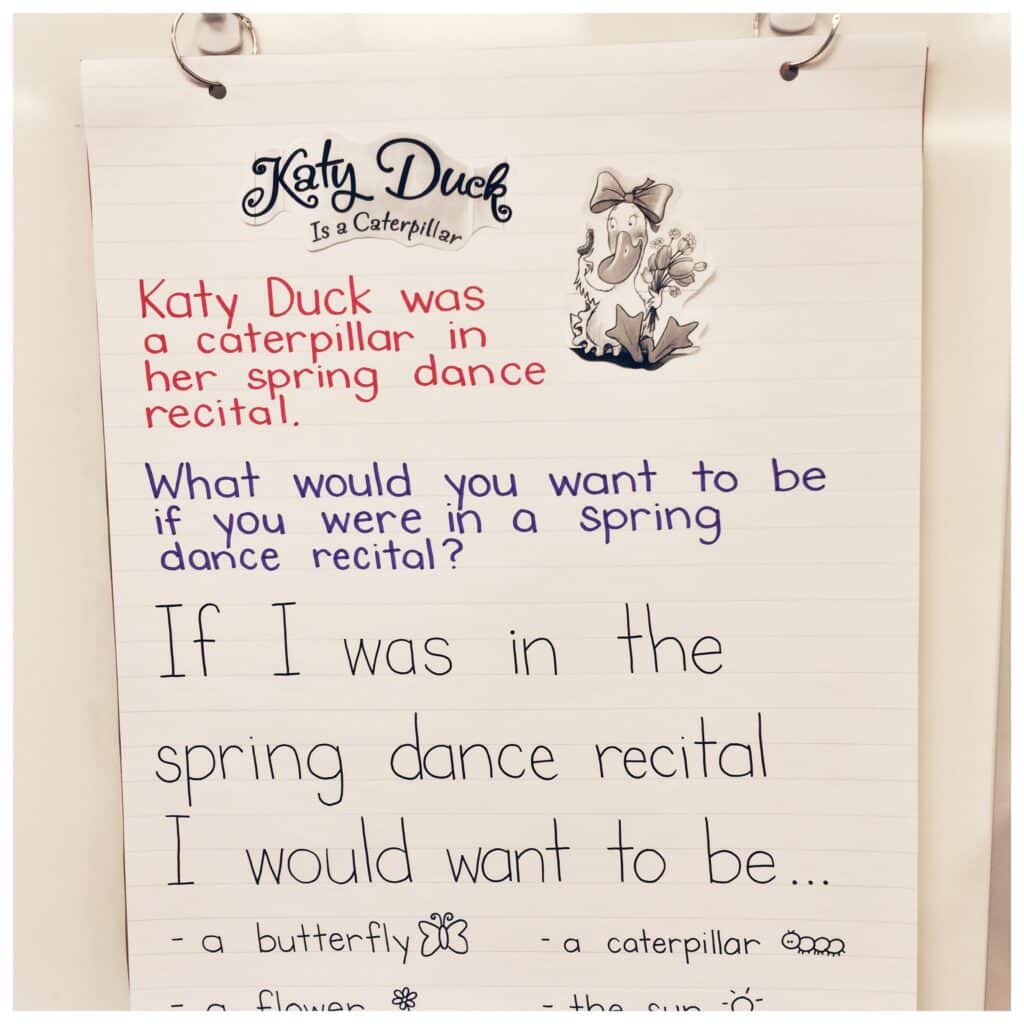 Katy Duck
Is a Caterpillar
Katy Duck was
a caterpillar in
her spring dance
recital.
What would you want to be
if you were in a spring
dance recital?
If I was in the
spring dance recital
I would want to be...
- a butterfly - a caterpillar
- a flower - the sun